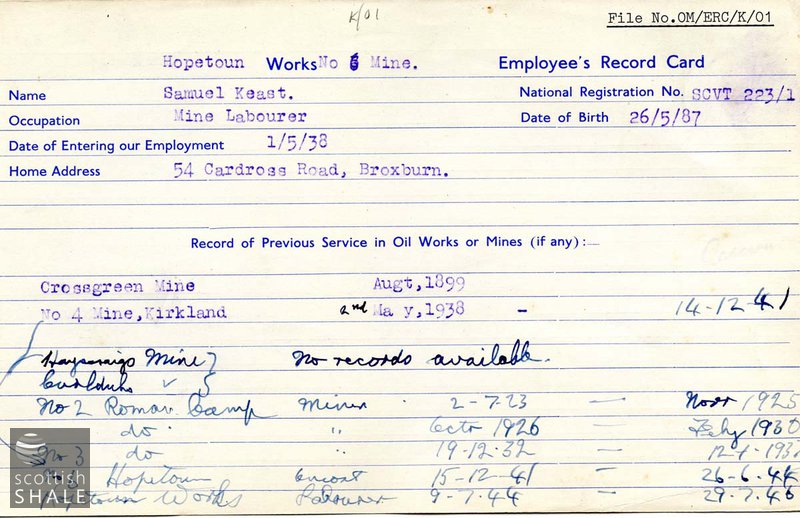 K/01
File No.OM/ERC/K/01
Hopetoun Works No 6 Mine. Employee's Record Card
Name Samuel Keast. National Registration No. SCVT 223/1
Occupation Mine Labourer Date of Birth 26/5/87
Date of Entering our Employment 1/5/38
Home Address 54 Cardross Road, Broxburn.
Record of Previous Service in Oil Works or Mines (if any):—
Crossgreen Mine Augt,1899
No 4 Mine,Kirkland 2nd Ma y,1938 - 14-12-41
Mine } No records available.
No 2 Roman Camp Miner 2-7-23 — Novr 1925
do. " Octr 1926 — Feby 1930
No 3 do " 19.12.32 —
Hopetoun 15-12-41 — 26-6-44
Works Labourer 9-7-44 — 29.7.46
scottish
SHALE